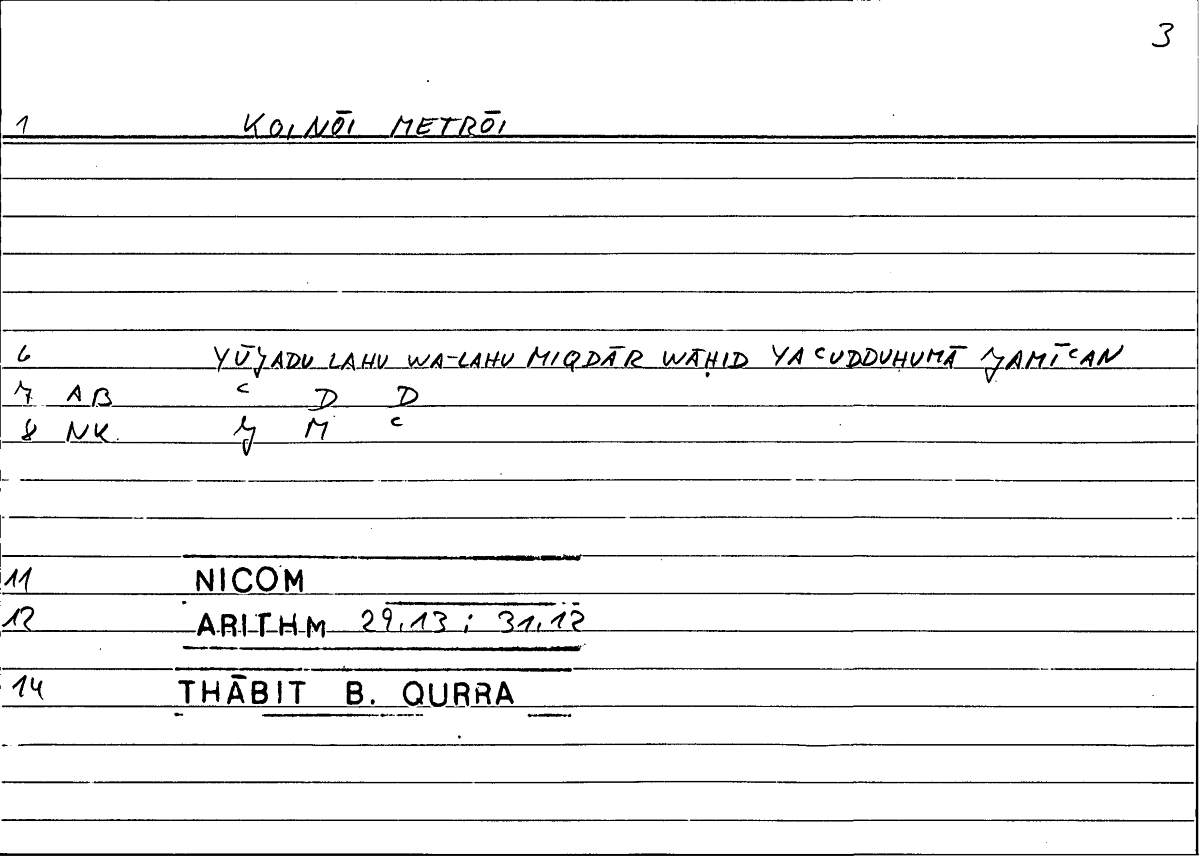 3
1 KOINŌI METRŌI
6 YŪJADU LAHU WA-LAHU MIQDĀR WĀḤID YAcUDDUHUMĀ JAMĪcAN
7 AB c D D
8 NK J M c
11 NICOM
12 ARITHM 29,13 ; 31,12
14 THĀBIT B. QURRA